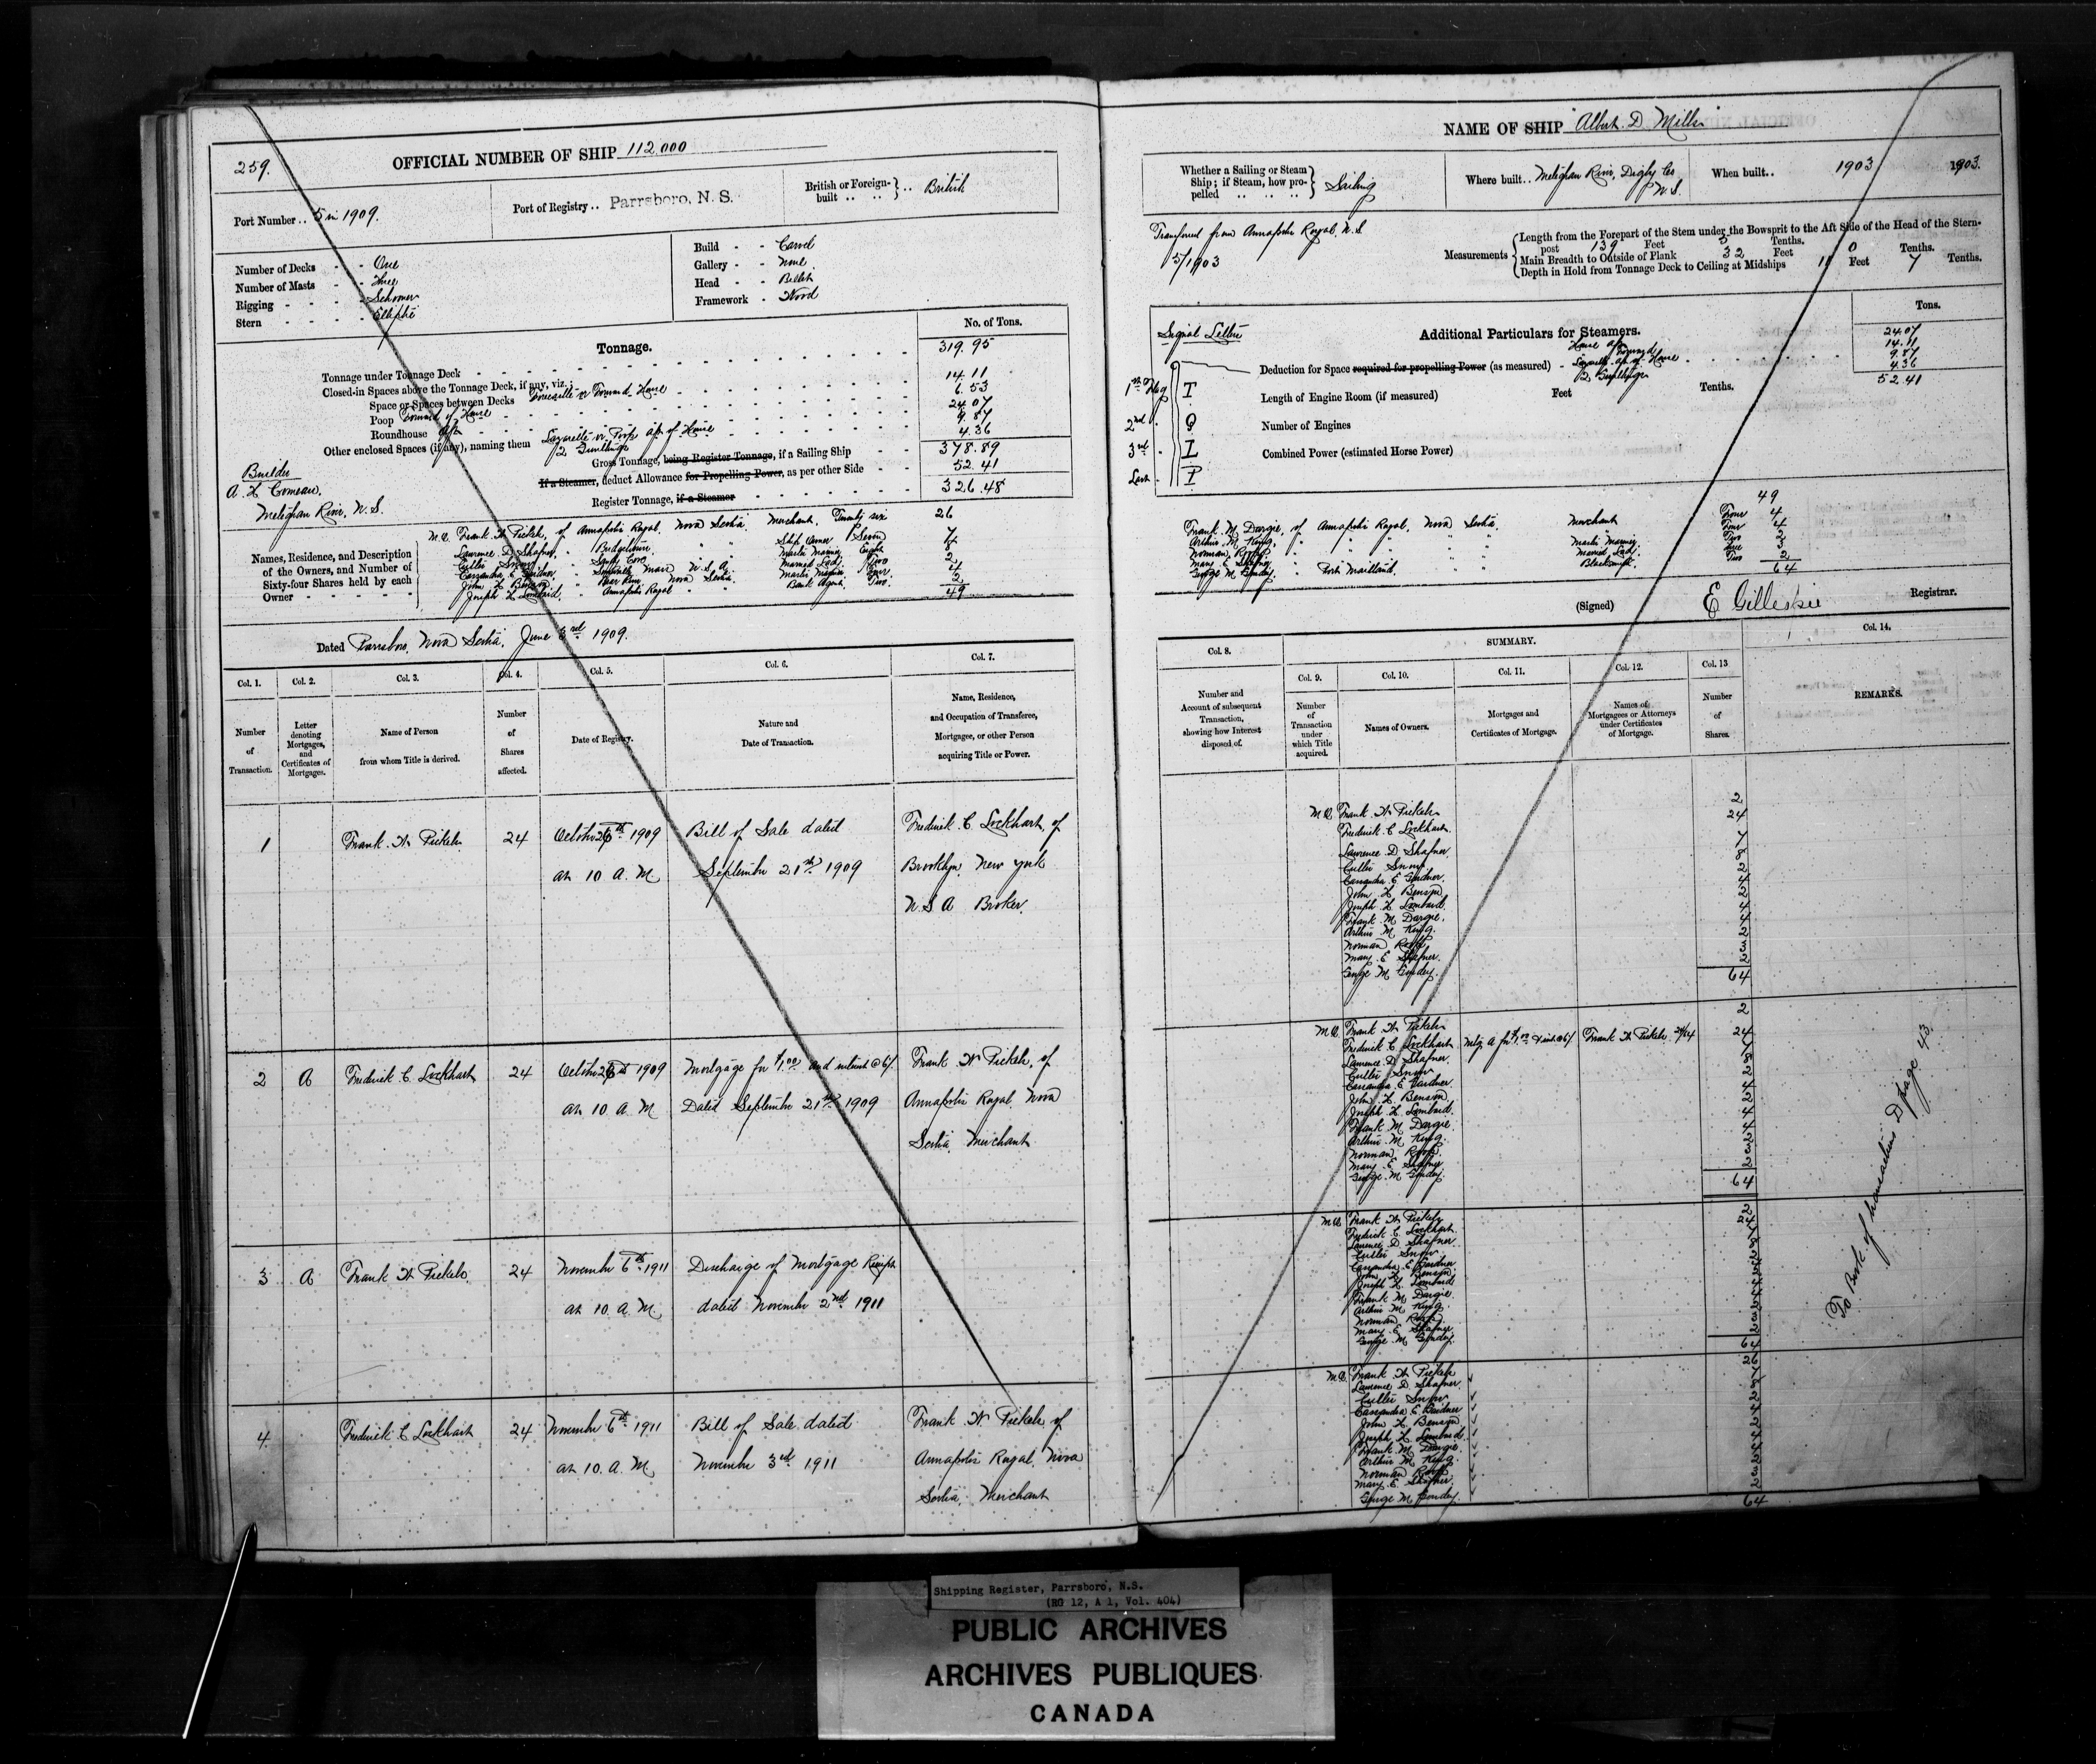 259.
OFFICIAL NUMBER OF SHIP 112.000
Port Number .. 5 in 1909.
Port of Registry .. Parrsboro, N. S.
British or Foreign-built .. .. British
Number of Decks - - One
Number of Masts - - Three
Rigging - - - - Schooner
Stern - - - - Elliptic
Build - - Carvel
Gallery - - None
Head - - Billet
Framework - Wood
Tonnage.
No. of Tons.
Tonnage under Tonnage Deck 319.95
Closed-in Spaces above the Tonnage Deck, if any, viz.:
Space or Spaces between Decks Forecastle or Forward House 14.11
Poop Forward of House 6.53
Roundhouse Aft 24.07
Other enclosed Spaces (if any), naming them Lazarette or Poop aft of House 9.87
4.36
Gross Tonnage, being Register Tonnage, if a Sailing Ship 378.89
If a Steamer, deduct Allowance for Propelling Power, as per other Side 52.41
Register Tonnage, if a Steamer 326.48
Builder
A. H. Comeau,
Meteghan River, N. S.
Names, Residence, and Description of the Owners, and Number of Sixty-four Shares held by each Owner
M.O. Frank W Pickels, of Annapolis Royal, Nova Scotia, Merchant, Twenty six 26
Lawrence D Shafner, Bridgetown, Ship Owner Seven 7
Snow, Sandy Cove, Master Mariner Eight 8
Cassandra E Gardner, U.S.A. Married Lady Two 2
John H Benson, Bear River, Nova Scotia, Master Mariner Four 4
Joseph H Lombard, Annapolis Royal Bank Agent, Two 2
49
Dated Parrsboro, Nova Scotia, June 3rd 1909.
Col. 1. Col. 2. Col. 3. Col. 4. Col. 5. Col. 6. Col. 7.
Number of Transaction.
Letter denoting Mortgages, and Certificates of Mortgages.
Name of Person from whom Title is derived.
Number of Shares affected.
Date of Registry.
Nature and Date of Transaction.
Name, Residence, and Occupation of Transferee, Mortgagee, or other Person acquiring Title or Power.
1 Frank W Pickels 24 October 26th 1909 Bill of Sale dated Frederick C Lockhart, of
at 10 A. M September 21st 1909 Brooklyn, New York
U S A Broker.
2 A Frederick C Lockhart 24 October 26th 1909 Mortgage for $1.00 and interest @ 6% Frank W Pickels, of
at 10 A. M Dated September 21st 1909 Annapolis Royal, Nova
Scotia, Merchant
3 A Frank W Pickels 24 November 6th 1911 Discharge of Mortgage Receipt
at 10. A. M dated November 2nd 1911
4 Frederick C Lockhart 24 November 6th 1911 Bill of Sale dated Frank W Pickels of
at 10. A. M November 3rd 1911 Annapolis Royal, Nova
Scotia, Merchant
NAME OF SHIP "Albert D Mills"
Whether a Sailing or Steam Ship; if Steam, how propelled .. .. .. Sailing
Where built .. Meteghan River, Digby Co N.S.
When built .. 1903 1903.
Transferred from Annapolis Royal, N.S
5/1903
Measurements
Length from the Forepart of the Stem under the Bowsprit to the Aft Side of the Head of the Stern-
post 139 Feet 5 Tenths.
Main Breadth to Outside of Plank 32 Feet 0 Tenths.
Depth in Hold from Tonnage Deck to Ceiling at Midships 11 Feet 7 Tenths.
Signal Letters
1st Flag T
2nd Q
3rd L
Last P
Additional Particulars for Steamers.
Tons.
Deduction for Space required for propelling Power (as measured)
House aft 24.07
Forward 14.11
Lazarette aft of House 9.87
4.36
52.41
Length of Engine Room (if measured) Feet Tenths.
Number of Engines
Combined Power (estimated Horse Power)
49
Frank M Dargie, of Annapolis Royal, Nova Scotia, Merchant Four 4
Arthur M King, Four 4
Norman Master Mariner Two 2
Mary E Shafner, Married Lady Three 3
George M Port Maitland, Blacksmith Two 2
64
(Signed) E Gillespie Registrar.
Col. 8. SUMMARY. Col. 14.
Col. 9. Col. 10. Col. 11. Col. 12. Col. 13
Number and Account of subsequent Transaction, showing how Interest disposed of.
Number of Transaction under which Title acquired.
Names of Owners.
Mortgages and Certificates of Mortgage.
Names of Mortgagees or Attorneys under Certificates of Mortgage.
Number of Shares.
REMARKS.
M.O. Frank W Pickels 2
Frederick C Lockhart 24
Lawrence D Shafner 7
Snow 8
Cassandra E Gardner 2
John H Benson 4
Joseph H Lombard 2
Frank M Dargie 4
Arthur M King 4
Norman 2
Mary E Shafner 3
George M 2
64
M.O. Frank W Pickels 2
Frederick C Lockhart 24 Mtg A for $1.00 & int @ 6% Frank W Pickels 24/64
Lawrence D Shafner 7
Snow 8
Cassandra E Gardner 2
John H Benson 4
Joseph H Lombard 2
Frank M Dargie 4
Arthur M King 4
Norman 2
Mary E Shafner 3
George M 2
64
M.O. Frank W Pickels 2
Frederick C Lockhart 24
Lawrence D Shafner 7
Snow 8
Cassandra E Gardner 2
John H Benson 4
Joseph H Lombard 2
Frank M Dargie 4
Arthur M King 4
Norman 2
Mary E Shafner 3
George M 2
64
M.O. Frank W Pickels 26
Lawrence D Shafner 7
Snow 8
Cassandra E Gardner 2
John H Benson 4
Joseph H Lombard 2
Frank M Dargie 4
Arthur M King 4
Norman 2
Mary E Shafner 3
George M 2
64
To Book of transactions D page 43.
Shipping Register, Parrsboro, N.S.
(RG 12, A 1, Vol. 404)
PUBLIC ARCHIVES
ARCHIVES PUBLIQUES
CANADA